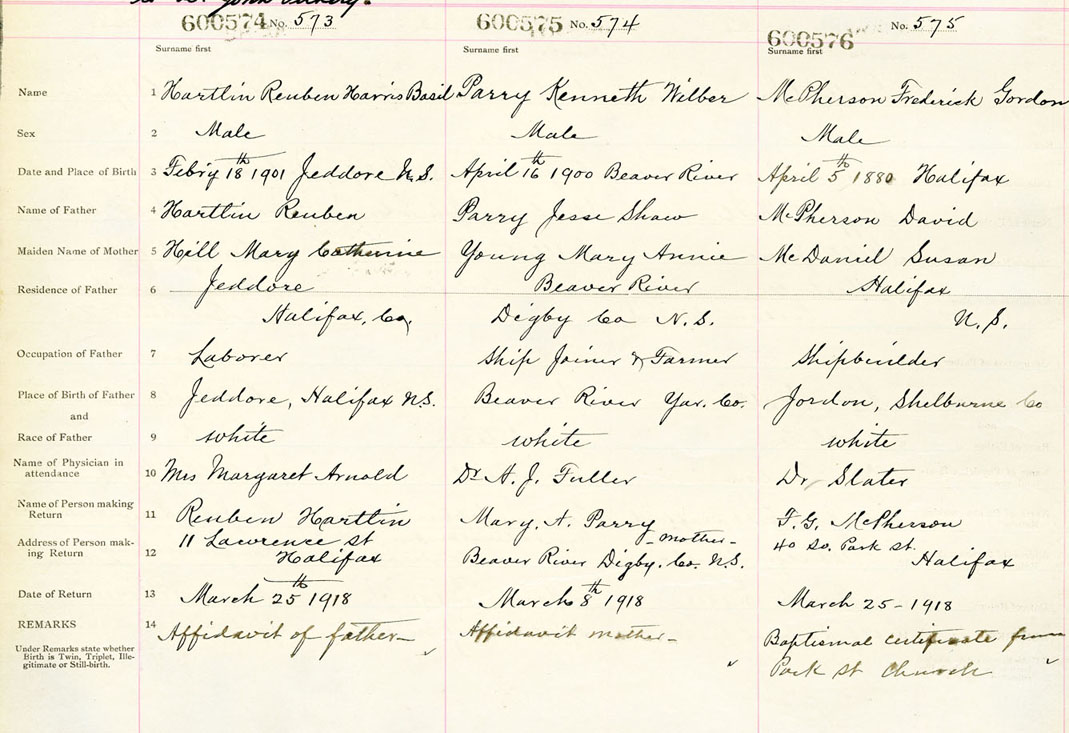 600574 No. 573
600575 No. 574
600576 No. 575
Surname first
Surname first
Surname first
Name 1 Hartlin Reuben Harris Basil Parry Kenneth Wilber McPherson Frederick Gordon
Sex 2 Male Male Male
Date and Place of Birth 3 Feb'ry 18th 1901 Jeddore N.S. April 16th 1900 Beaver River April 5th 1880 Halifax
Name of Father 4 Hartlin Reuben Parry Jesse Shaw McPherson David
Maiden Name of Mother 5 Hill Mary Catherine Young Mary Annie McDaniel Susan
Residence of Father 6 Jeddore Beaver River Halifax
Halifax, Co. Digby Co N.S. N.S.
Occupation of Father 7 Laborer Ship Joiner & Farmer Shipbuilder
Place of Birth of Father 8 Jeddore, Halifax N.S. Beaver River Yar. Co. Jordon, Shelburne Co
and
Race of Father 9 white white white
Name of Physician in
attendance 10 Mrs Margaret Arnold Dr A. J. Fuller Dr Slater
Name of Person making
Return 11 Reuben Hartlin Mary. A. Parry - mother - F. G. McPherson
Address of Person mak-
ing Return 12 11 Lawrence St Beaver River Digby. Co. N.S. 40 So. Park St.
Halifax Halifax
Date of Return 13 March 25th 1918 March 8th 1918 March 25 - 1918
REMARKS 14 Affidavit of father Affidavit mother - Baptismal certificate from
Park St Church
Under Remarks state whether
Birth is Twin, Triplet, Ille-
gitimate or Still-birth.